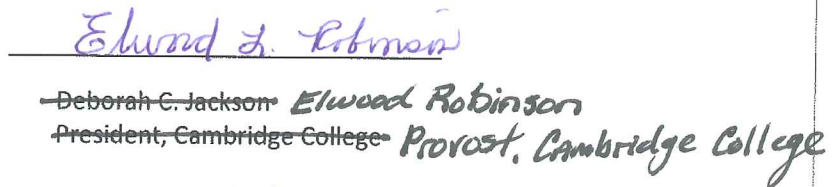 Elwood L. Robinson
Deborah C. Jackson Elwood Robinson
President, Cambridge College Provost, Cambridge College